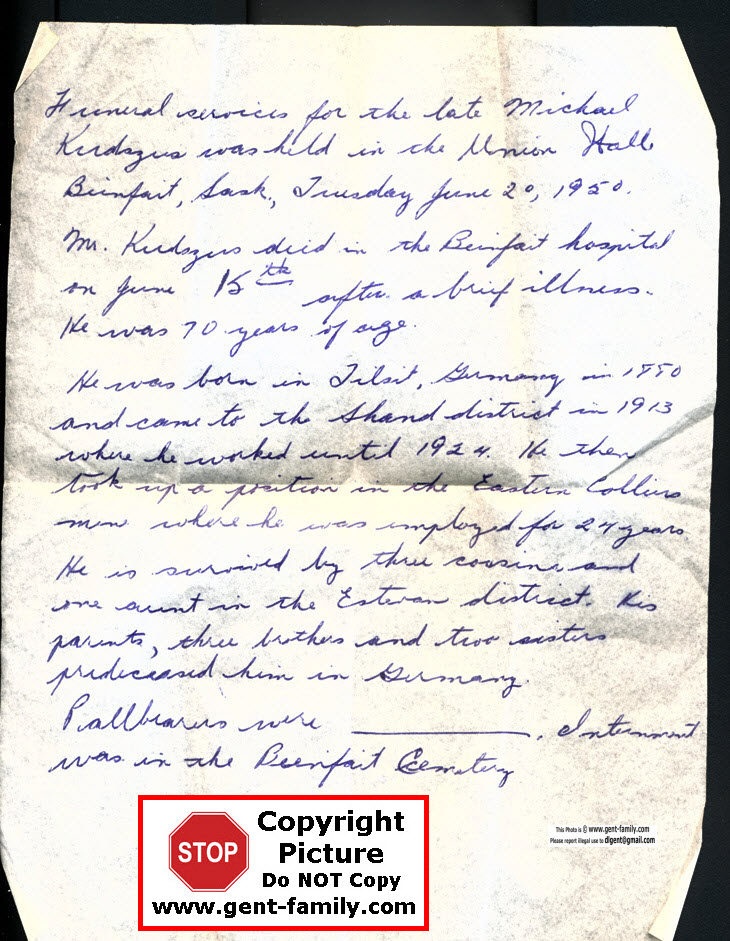 Funeral services for the late Michael
Kudszus was held in the Union Hall
Bienfait, Sask., Tuesday June 20, 1950.
Mr. Kudszus died in the Bienfait hospital
on June 15th after a brief illness.
He was 70 years of age.
He was born in Tilsit, Germany in 1880
and came to the Shand district in 1913
where he worked until 1924. He then
took up a position in the Eastern Colliers
mine where he was employed for 24 years
He is survived by three cousins and
one aunt in the Estevan district. His
parents, three brothers and two sisters
predeceased him in Germany.
Pallbearers were __________. Internment
was in the Bienfait Cemetery
STOP
Copyright
Picture
Do NOT Copy
www.gent-family.com
This Photo is © www.gent-family.com
Please report illegal use to digent@gmail.com